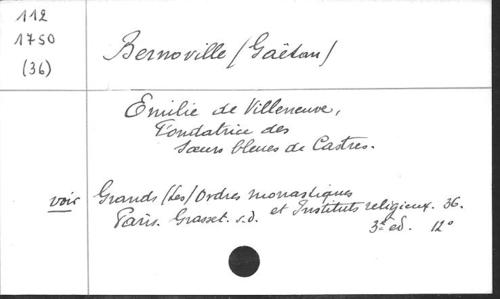 112
1750
(36)
Bernoville (Gaëtan)
Emilie de Villeneuve,
Fondatrice des
Sœurs bleues de Castres.
voir Grands (Les) Ordres monastiques
et Instituts religieux. 36.
Paris. Grasset. s.d. 3e ed. 12°